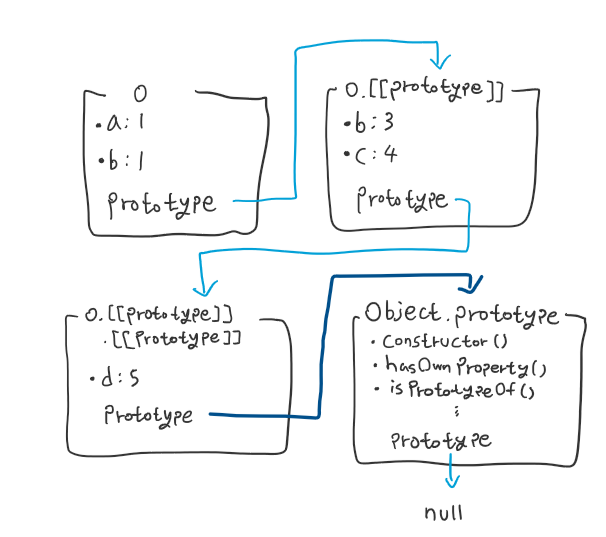 O
• a: 1
• b: 1
Prototype
O.[[Prototype]]
• b: 3
• C: 4
Prototype
O.[[Prototype]]
.[[Prototype]]
• d: 5
Prototype
Object.prototype
• Constructor()
• hasOwnProperty()
• isPrototypeOf()
⋮
Prototype
null